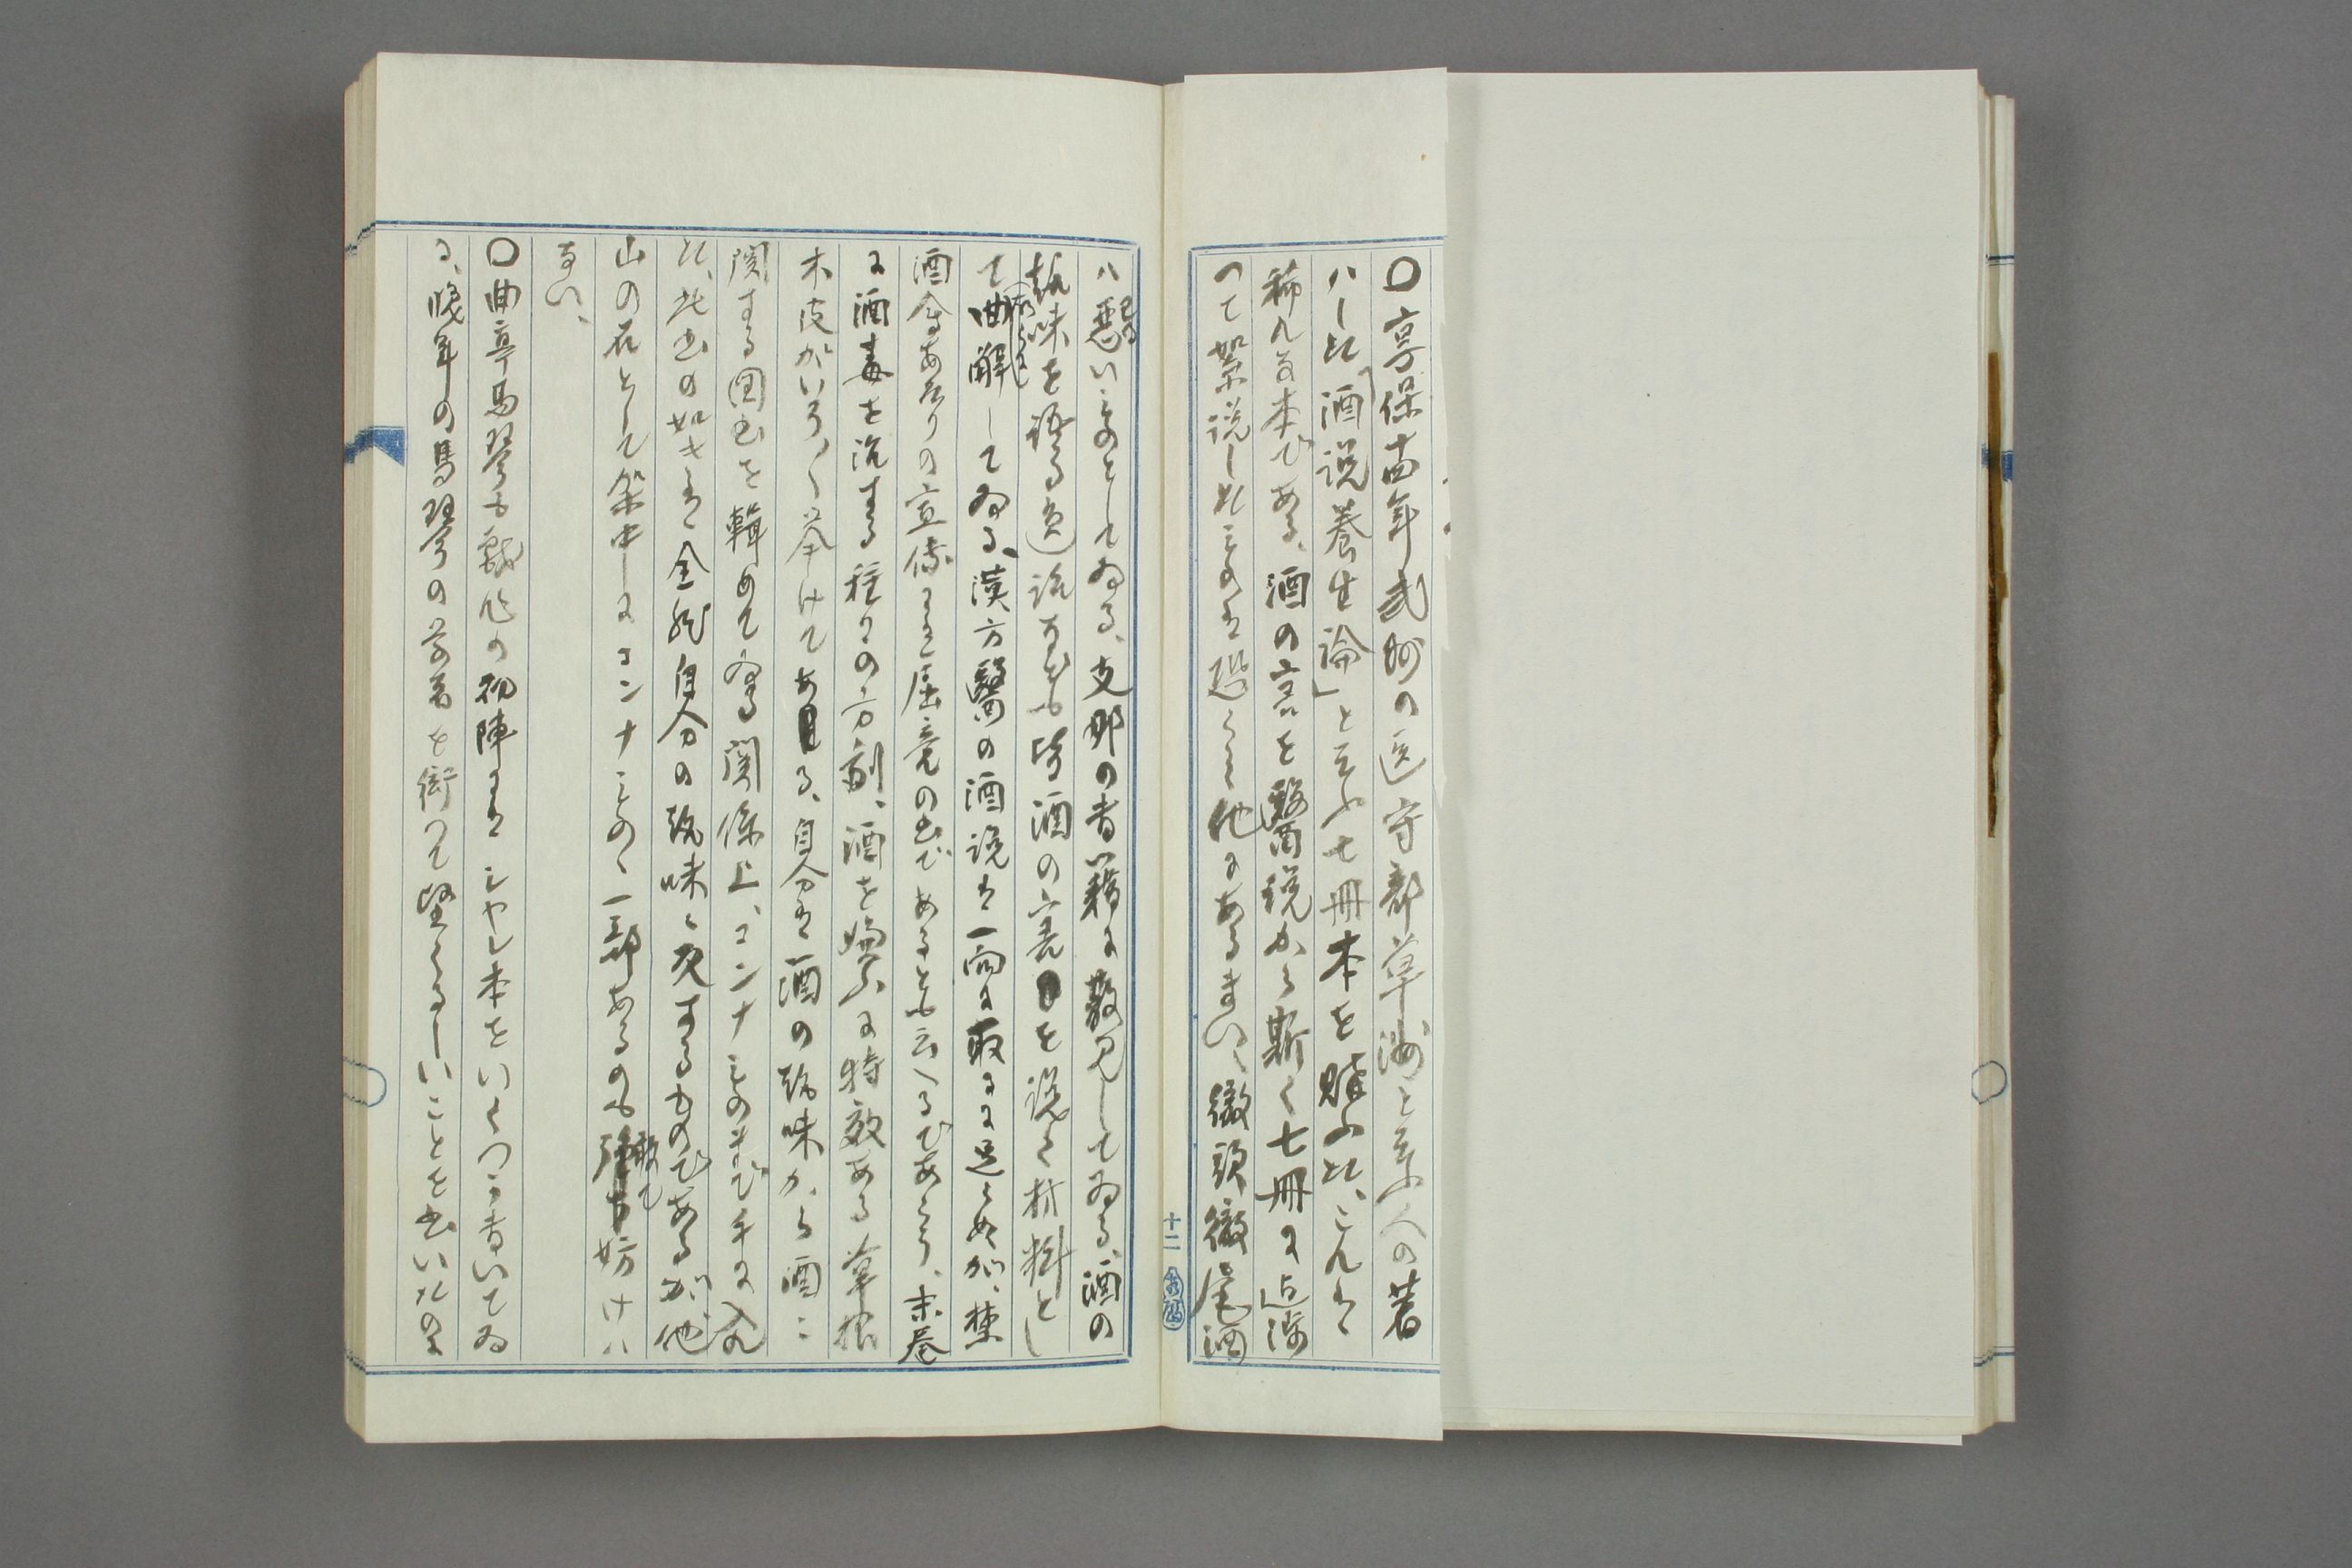 〇享保十四年武州の医守部草洲と云ふ人の著
ハした「酒説養生論」と云ふ七冊本を購ふた、これは
稀れな本である、酒の害を醫説から斯く七冊に亘
つて架説したものは恐らく他にあるまい、徹頭徹尾酒
ハ悪いものとしてゐる、支那の書籍に散見してゐる、酒の
趣味を語る逸話なども皆酒の害を説く材料とし
て曲解してゐる、漢方醫の酒説は一向に取るに足らぬが、禁
酒会あたりの宣伝には屈竟の書であるとも云へるであらう、末巻
に酒毒を治する種々の方剤、酒を嫌ふに特效ある草根
木皮がいろ〱挙げてある、自分は酒の趣味から酒に
関する図書を輯めて居る関係上、コンナもの迄び手に入れ
た、此書の如きは全然自分の趣味と反するものであるが、他
山の石として架中にコンナもの、一部あるのも敢て妨けハ
ない、
〇曲亭馬琴も戯作の初陣にはシヤレ本をいくつか書いてゐ
る、晩年の馬琴の著書を衒つて堅くるしいことを書いたのに
十二